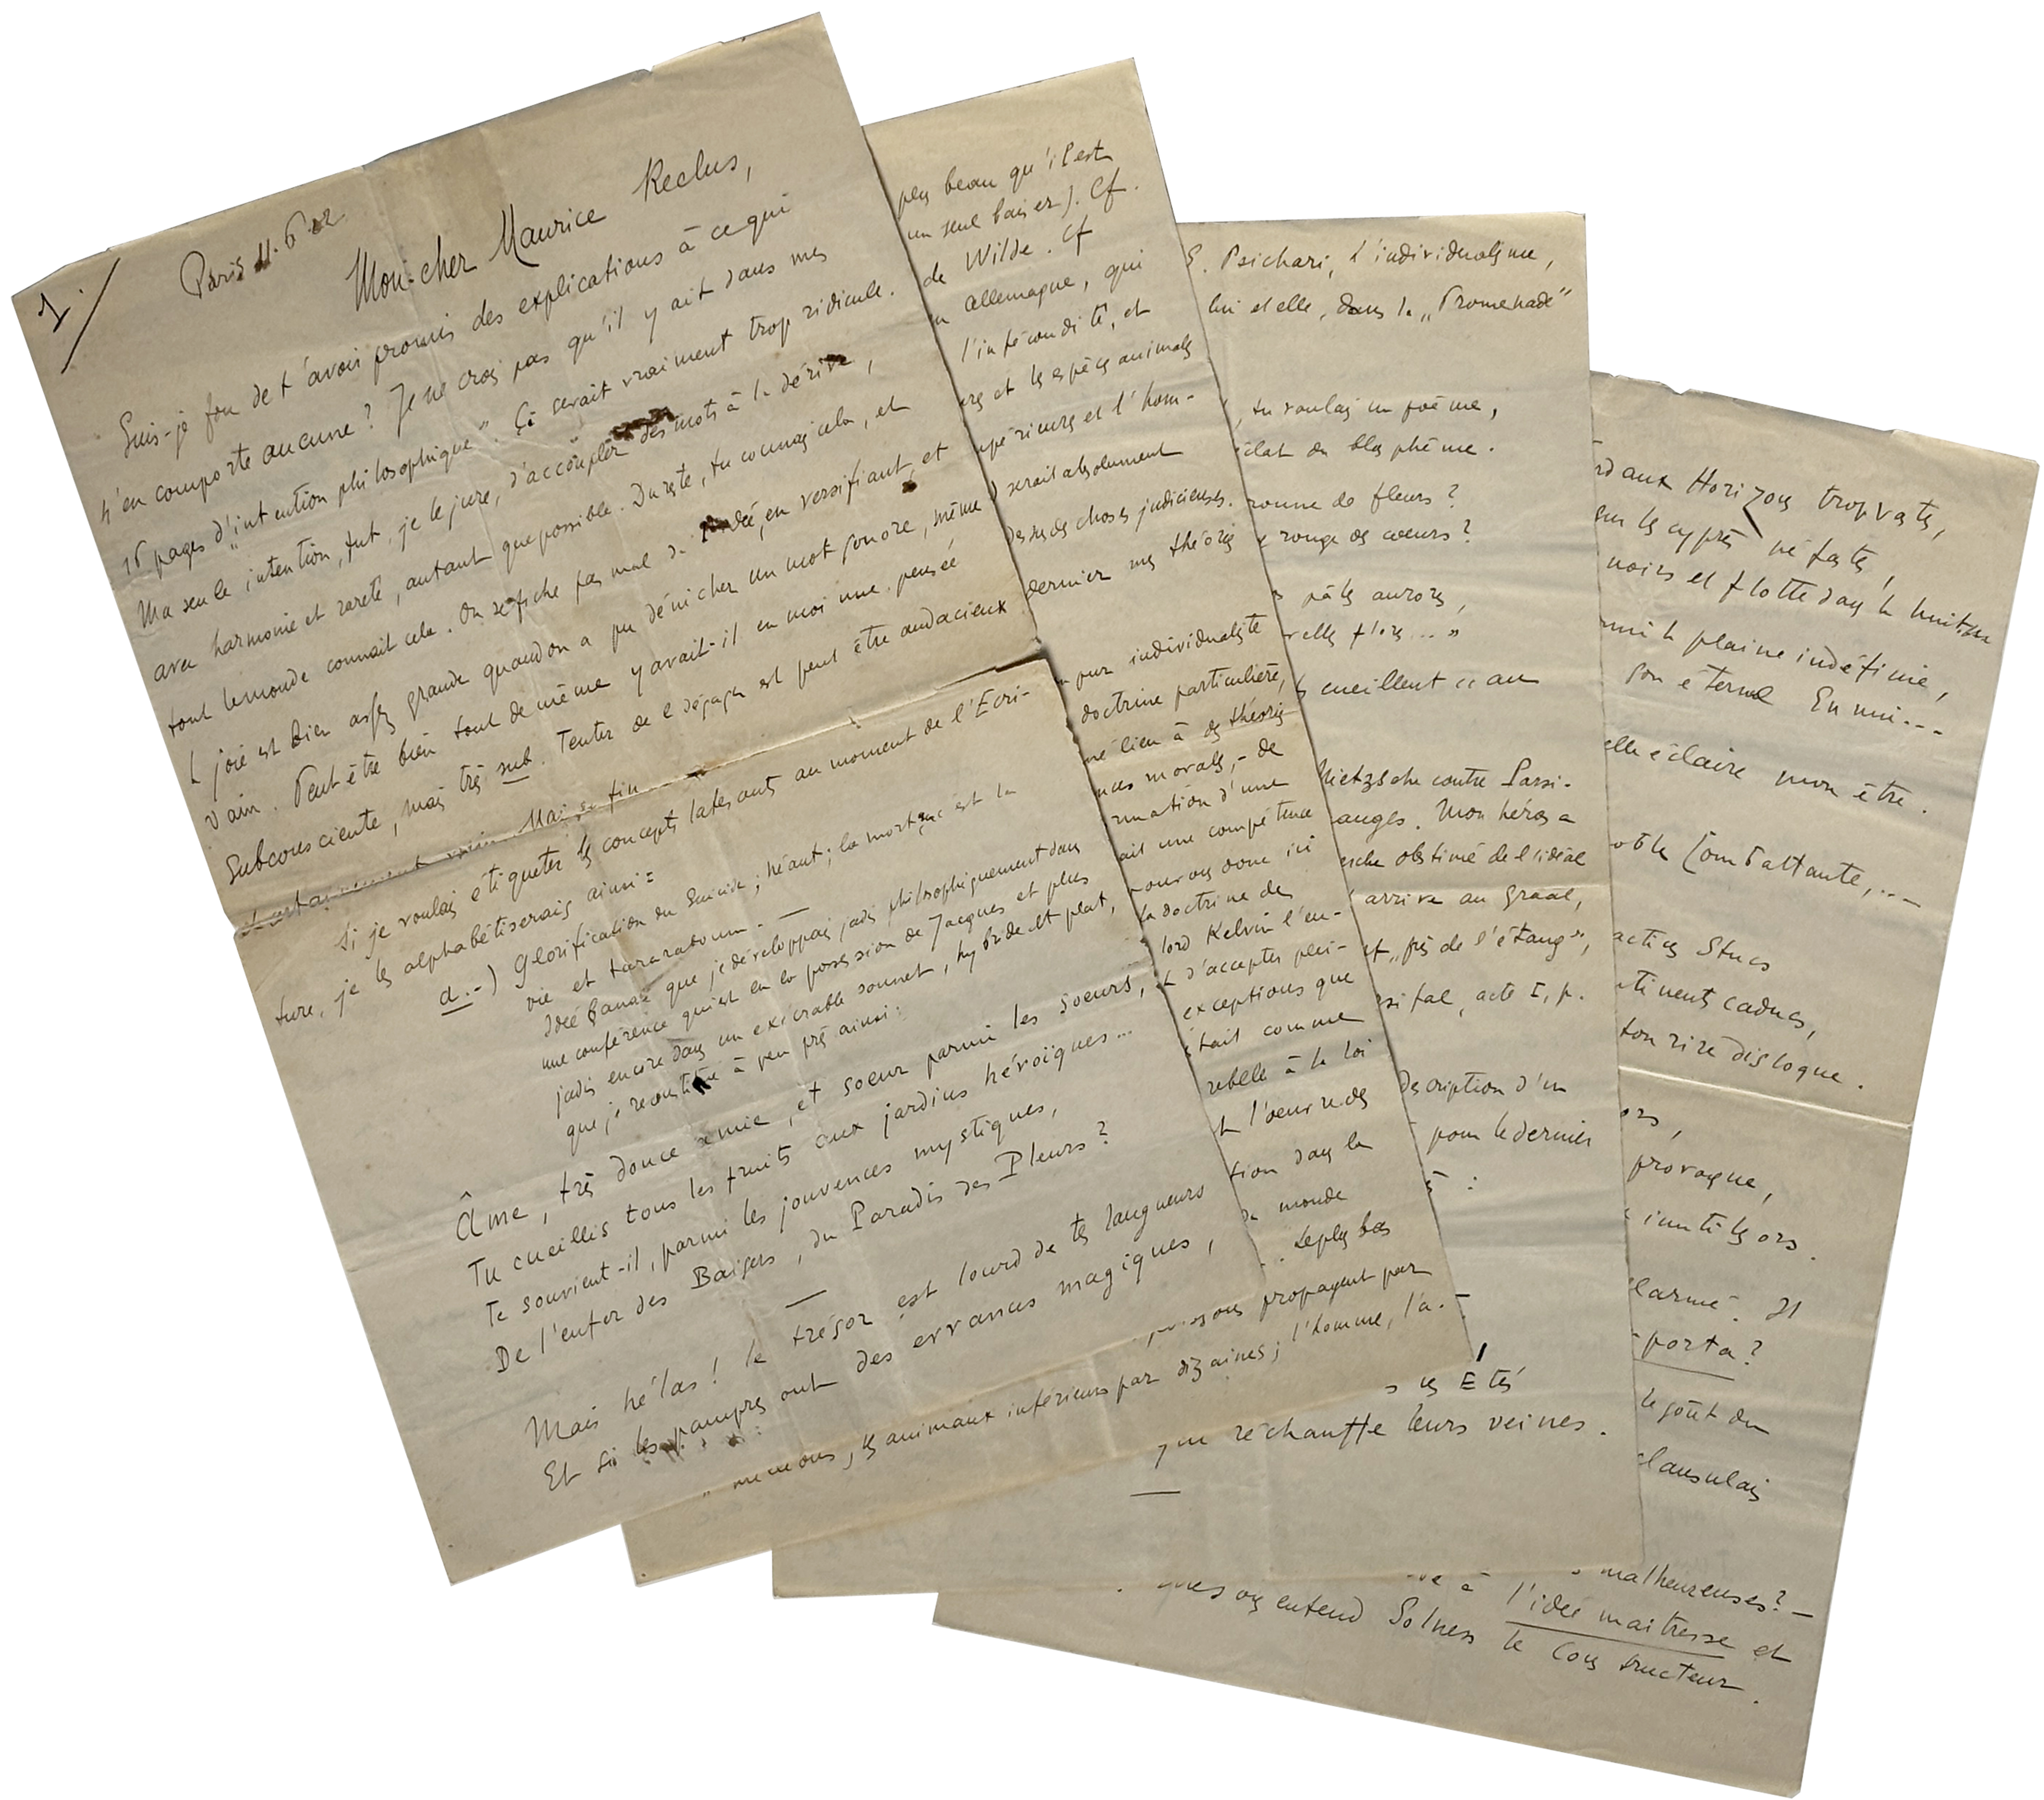 1./
Paris 11.6.02
Mon cher Maurice Reclus,
Suis-je fou de t'avoir promis des explications à ce qui
n'en comporte aucune ? Je ne crois pas qu'il y ait dans mes
16 pages d'"intention philosophique". Ça serait vraiment trop ridicule.
Ma seule intention, fut, je le jure, d'accoupler des mots à la dérive,
avec harmonie et rareté, autant que possible. Du reste, tu connais cela, et
tout le monde connaît cela. On se fiche pas mal de l'idée, en versifiant, et
la joie est bien assez grande quand on a pu dénicher un mot sonore, même
vain. Peut être bien tout de même y avait-il en moi une pensée
subconsciente, mais très sub. Tenter de la dégager est peut être audacieux
Mais, enfin
Si je voulais étiqueter les concepts latescents au moment de l'Ecri-
ture, je les alphabétiserais ainsi :
a.-) Glorification du Suicide ; Néant ; la mort, c'est la
vie et tararaboum. —
Idée banale que je développais jadis philosophiquement dans
une conférence qui est en la possession de Jacques et plus
jadis encore dans un exécrable sonnet, hybride et plat,
que je reconstitue à peu près ainsi :
Âme, très douce amie, et soeur parmi les soeurs,
Tu cueillis tous les fruits aux jardins héroïques...
Te souvient-il, parmi les jouvences mystiques,
De l'enfer des Baisers, du Paradis des Pleurs ?
—
Mais hélas ! le trésor est lourd de tes langueurs
Et si les pampres ont des errances magiques,
plus beau qu'il est
un seul baiser). Cf.
de Wilde. Cf
en Allemagne, qui
l'infécondité, et
et les espèces animales
supérieures et l'hom-
) serait absolument
des choses judicieuses.
dernier mes théories
pur individualiste
doctrine particulière,
lieu à des théories
morales, - de
d'une
ait une compétence
pourvus donc ici
la doctrine de
lord Kelvin l'en-
d'accepter plei-
exceptions que
était comme
rebelle à la loi
l'oeuvre des
tion dans la
du monde
. Les plus bas
propagent par
, les animaux inférieurs par dizaines ; l'homme, l'a.-
E. Psichari, L'individualisme,
lui et elle, dans la "Promenade"
, tu voulais un poème,
éclat du blasphème.
ronne de fleurs ?
rouge des coeurs ?
pâles aurores,
elles flores... »
cueillent au
Nietzsche contre Parsi-
anges. Mon héros a
rche obstiné de l'idéal
arrive au Graal,
et "près de l'étang",
sifal, acte I, p.
description d'un
pour le dernier
:
Étés
qui réchauffe leurs veines.
—
aux Horizons trop vastes,
sur les cyprès néfastes,
noirs et flotte dans la nuit
la plaine indéfinie,
son éternel Ennui..
elle éclaire mon être.
Combattante,...
actices Stucs
timents caducs,
ton rire disloque.
ors,
provoque,
inutiles ors.
larmé. Il
porta ?
le goût du
clausulais
malheureuses ? —
à l'idée maitresse et
entend Solness le Constructeur.